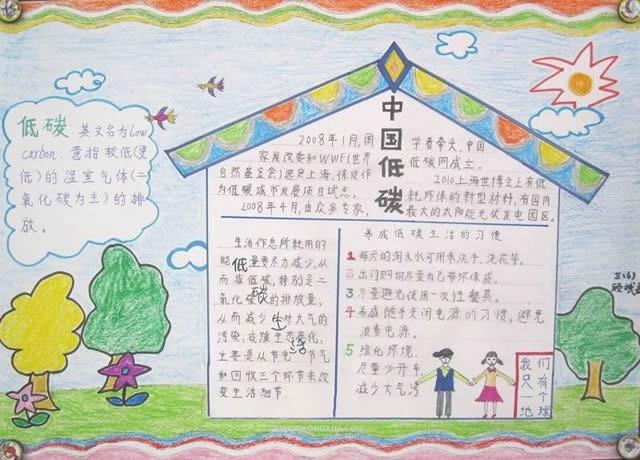 低碳 英文名为low
carbon.意指较低(更
低)的温室气体(二
氧化碳为主)的排
放。
中国低碳
2008年1月,国
家发改委和WWF(世界
自然基金会)选定上海、保定作
为低碳城市发展项目试点。
2008年4月,由众多专家,
学者牵头,中国
低碳网成立。
2010上海世博会上有低
耗环保的新型材料,有国内
最大的太阳能光伏发电园区。
低碳生活
生活作息所耗用的
能量要尽力减少,从
而减低碳,特别是二
氧化碳的排放量,
从而减少对大气的
污染,减缓生态恶化,
主要是从节电 节气
和回收三个环节来改
变生活细节
养成低碳生活的习惯
1 每天的淘米水可用来洗手、浇花等。
2 出门购物尽量自己带环保袋。
3 尽量避免使用一次性餐具。
4 养成随手关闭电源的习惯,避免
浪费电源。
5 绿化环境.
尽量少开车
减少大气污
我们
只有
一个
地球